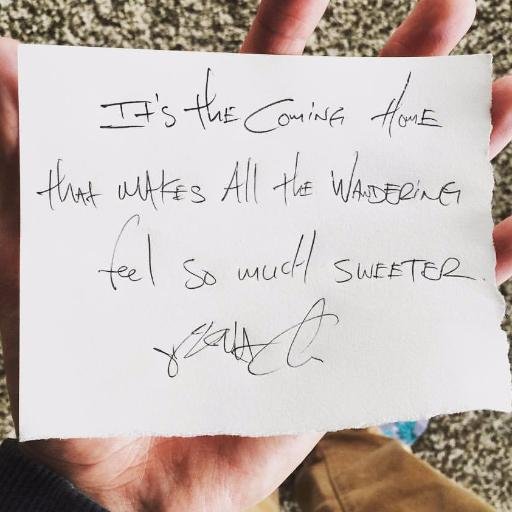 It's the Coming Home
that makes All the Wandering
feel so much sweeter.